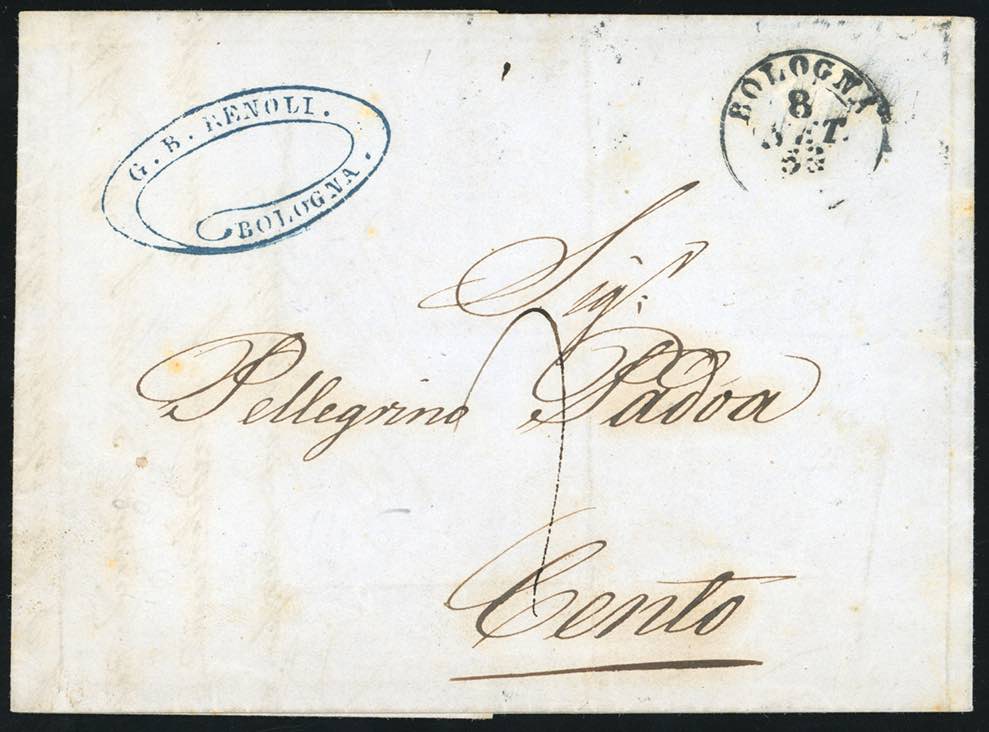 G. B. RENOLI.
BOLOGNA.
BOLOGNA
8
SET.
53
Sigr.
Pellegrino Padova
Cento